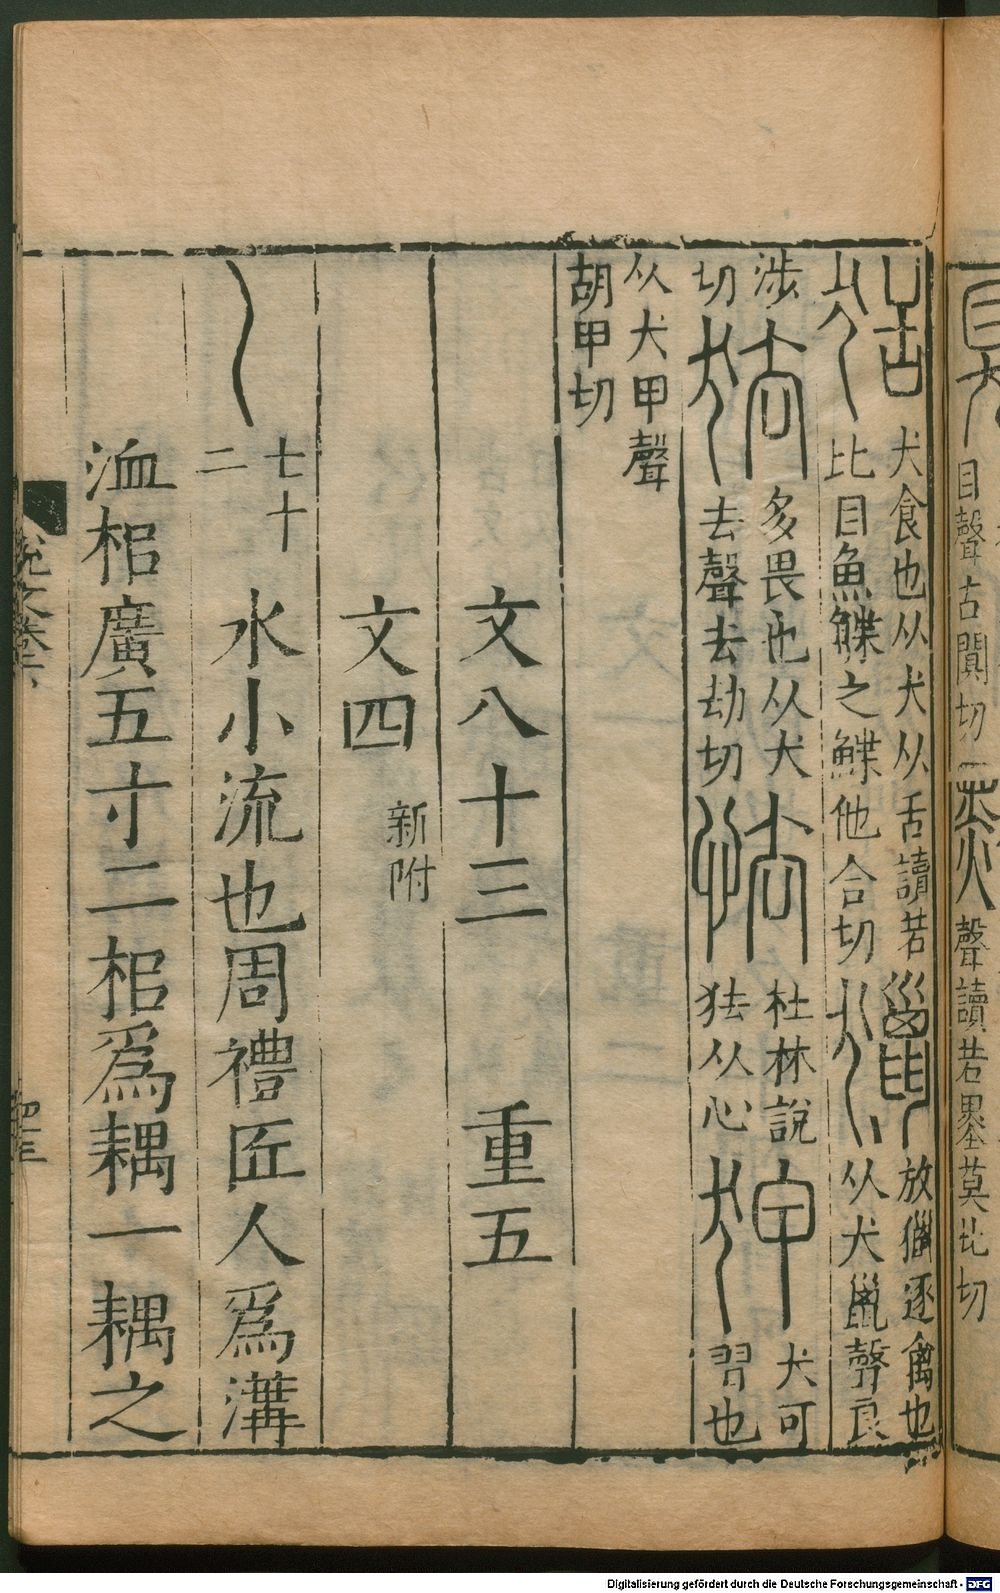 目聲古闃切默
聲讀若墨莫北切
狧犬食也从犬从舌讀若
比目魚鰈之鰈他合切獵放獵逐禽也
从犬巤聲良
涉
切㹤多畏也从犬
去聲去劫切怯杜林說
㹤从心狎犬可
習也
从犬甲聲
胡甲切
文八十三 重五
文四 新附
𡿨 七十二 水小流也周禮匠人爲溝
洫梠廣五寸二梠爲耦一耦之
說文卷
Digitalisierung gefördert durch die Deutsche Forschungsgemeinschaft - DFG